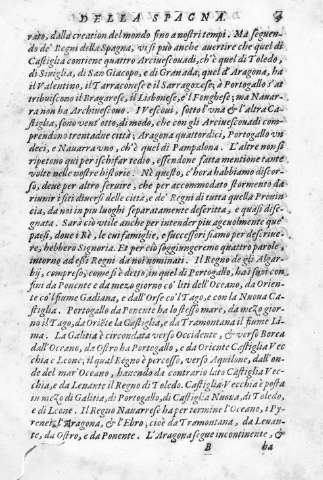 DELLA SPAGNA.
rato, dalla creation del mondo sino a nostri tempi. Ma seguen-
do de' Regni della Spagna, vi si può anche auertire che quel di
Castiglia contiene quattro Arciuescouadi, ch'è quel di Toledo,
di Siuiglia, di San Giacopo, e di Granada; quel d'Aragona, ha
il Valentino, il Tarraconese e il Sarragozese; à Portogallo s'at
tribuiscono il Bragarese, il Lisbonese, e l'Fonghese; ma Nauar-
ra non ha Archiuescouo. I Vescoui, sotto l'vna & l'altra Ca-
stiglia, sono vent'otto, di modo, che con gli Arciuescouadi com-
prendono trentadue città; Aragona quattordici, Portogallo vn
deci, e Nauarra vno, ch'è quel di Pampalona. L'altre non si
ripetono qui per schifar tedio, essendone fatta mentione tante
volte nelle nostre historie. Nè questo, c'hora habbiamo discor-
so, deue per altro seruire, che per accommodato stormento da
riunir i siti diuersi delle città, e de' Regni di tutta quella Prouin
cia, da noi in piu luoghi separatamente descritta, e quasi dise-
gnata. Sarà ciò vtile anche per intender piu ageuolmente que'
paesi, doue i Rè, le cui famiglie, e successori siamo per descriue-
re, hebbero Signoria. Et per ciò soggiungeremo quattro parole,
intorno ad essi Regni da noi nominati. Il Regno de gli Algar-
bij, compreso, come s'è detto, in quel di Portogallo, ha i suoi con
fini da Ponente e da mezo giorno co' liti dell'Oceano, da Orien
te co'l fiume Gadiana, e dall'Orse co'l Tago, e con la Nuoua Ca-
stiglia. Portogallo da Ponente ha lo stesso mare, da mezo gior-
no il Tago, da Oriēte la Castiglia, e da Tramontana il fiume Li-
ma. La Galitia è circondata verso Occidente, & verso Borea
dall'Oceano, da Ostro ha Portogallo, e da Oriente Castiglia Vec
chia e Leone; il qual Regno è percosso, verso Aquilone, dall'on-
de del mar'Oceano, hauendo da contrario lato Castiglia Vec-
chia, e da Leuante il Regno di Toledo. Castiglia Vecchia è posta
in mezo di Galitia, di Portogallo, di Castiglia Nuoua, di Toledo,
e di Leone. Il Regno Nauarrese ha per termine l'Oceano, i Py-
renei, l'Aragona, & l'Ebro, cioè da Tramontana, da Leuan-
te, da Ostro, e da Ponente. L'Aragona segue incontinente, &
B ha